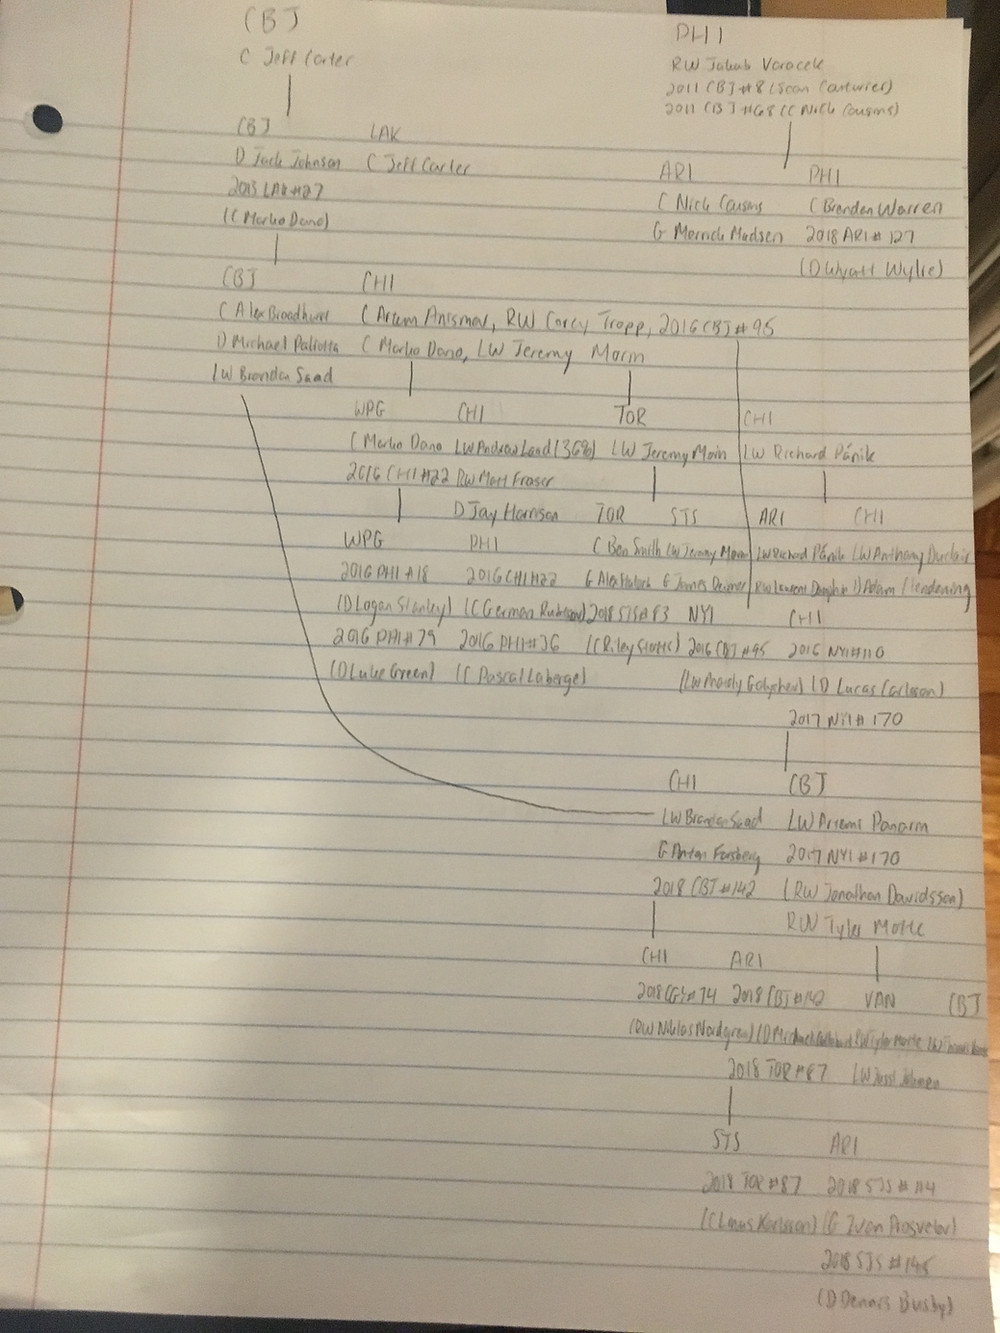 CBJ PHI
C Jeff Carter RW Jakub Voracek
2011 CBJ #8 (Sean Couturier)
2011 CBJ #68 (C Nick Cousins)
CBJ LAK
D Jack Johnson C Jeff Carter ARI PHI
2013 LAK #27 C Nick Cousins C Brendan Warren
(C Marko Dano) G Merrick Madsen 2018 ARI #127
(D Wyatt Wylie)
CBJ CHI
C Alex Broadhurst C Artem Anismov, RW Corey Tropp, 2016 CBJ #95
D Michael Paliotta C Marko Dano, LW Jeremy Morin
LW Brandon Saad
WPG CHI TOR CHI
C Marko Dano LW Andrew Ladd (36%) LW Jeremy Morin LW Richard Pánik
2016 CHI #22 RW Matt Fraser
D Jay Harrison TOR STS ARI CHI
WPG PHI C Ben Smith LW Jeremy Morin LW Richard Pánik LW Anthony Duclair
2016 PHI #18 2016 CHI #22 G Alex Stalock D Adam Clendening
(D Logan Stanley) (C German Rubtsov) 2018 STS #83 NYI CHI
2016 PHI #79 2016 PHI #36 (C Riley Stotts) 2016 CBJ #95 2016 NYI #110
(D Luke Green) (C Pascal Laberge) (LW Anatoly Golyshev) (D Lucas Carlsson)
2017 NYI #170
CHI CBJ
LW Brandon Saad LW Artemi Panarin
G Anton Forsberg 2017 NYI #170
2018 CBJ #142 (RW Jonathan Davidsson)
RW Tyler Motte
CHI ARI
2018 #74 2018 CBJ #142 VAN CBJ
Niklas Nordgren)
2018 TOR #87 LW Jussi Jokinen
STS ARI
2018 TOR #87 2018 SJS #114
(C Linus Karlsson) (G Ivan Prosvetov)
2018 SJS #145
(D Dennis Busby)